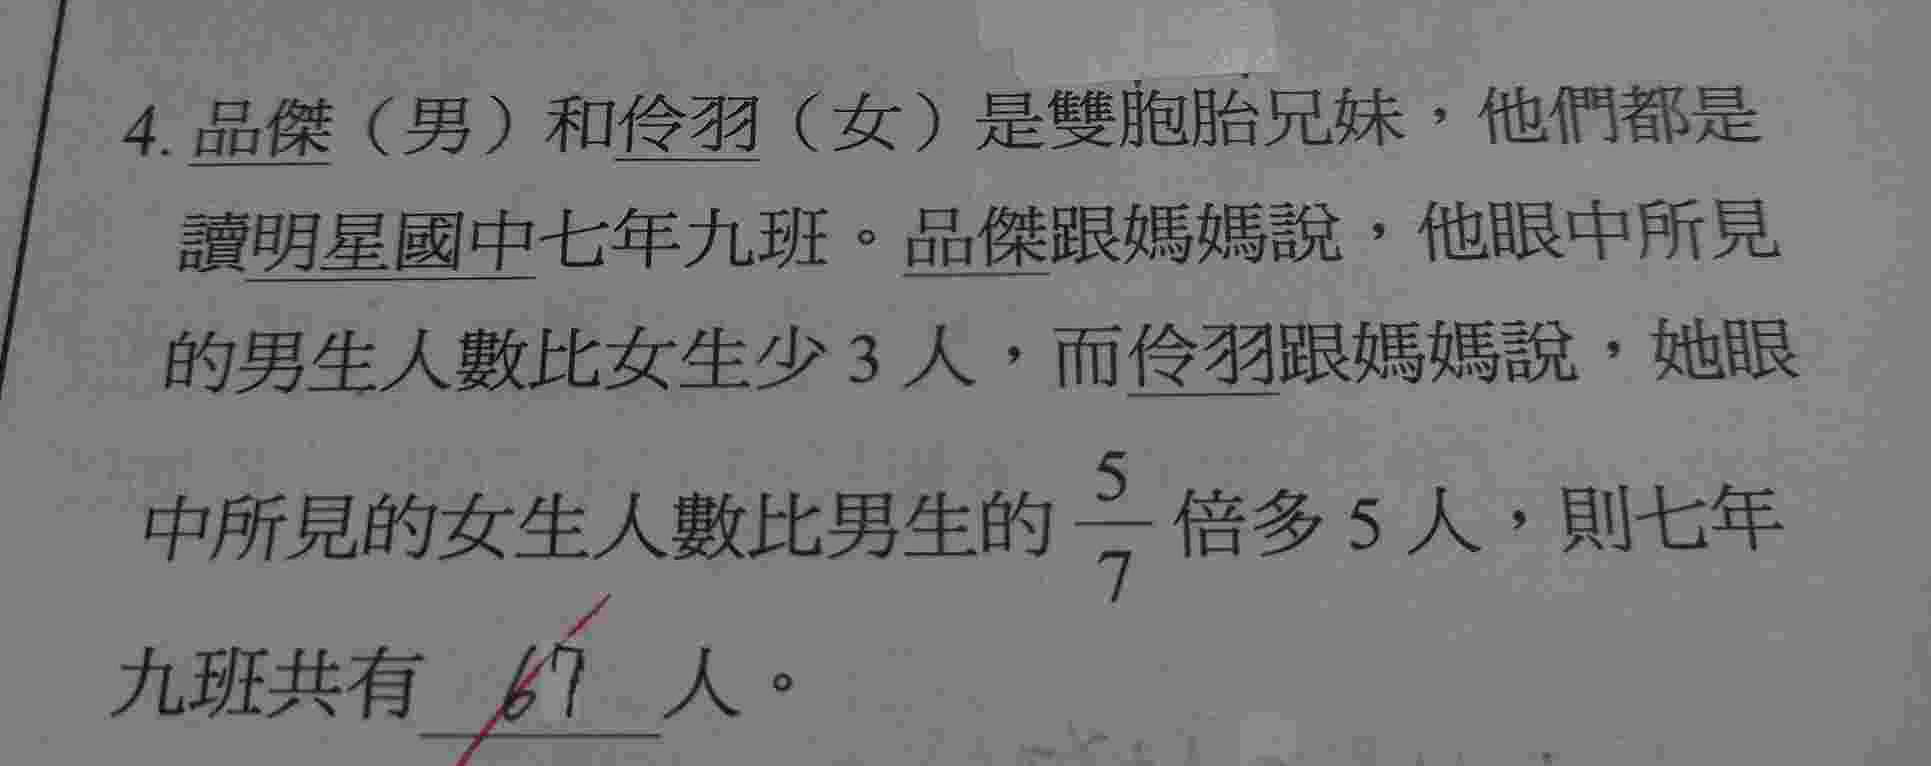 4. 品傑（男）和伶羽（女）是雙胞胎兄妹，他們都是
讀明星國中七年九班。品傑跟媽媽說，他眼中所見
的男生人數比女生少 3 人，而伶羽跟媽媽說，她眼
中所見的女生人數比男生的 5/7 倍多 5 人，則七年
九班共有 67 人。